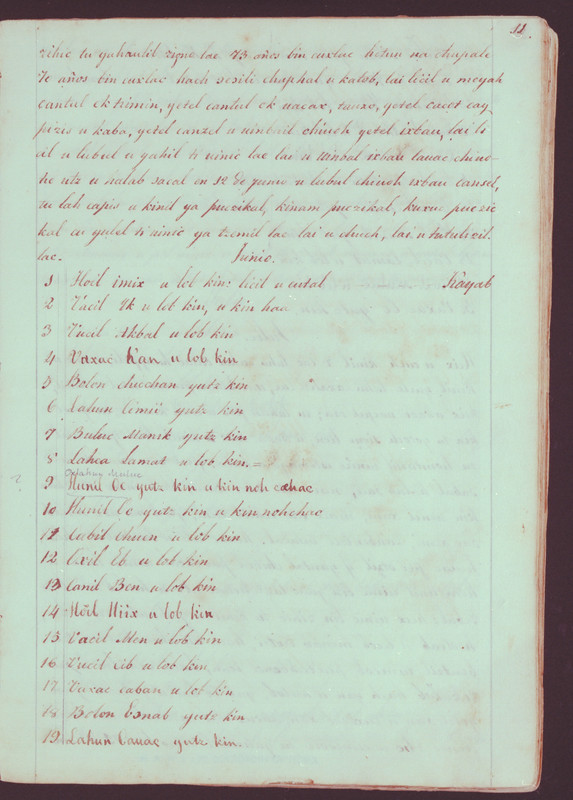 11.
zihic tu yuhaulil zigne lae 73 años bin cuxlac hetun na chupale
70 años bin cuxlac hach sesili chaphal u kalob, lai licil u meyah
cantul ek tzimin, yetel cantul ek uacax,
u kaba, yetel canzel u uinbail chiuoh yetel ixbau, lai li
cil u lubul u yahil ti uinic lae lai u uinbal ixbau lauac chiuo-
he utz u halab sacal en 12 de Junio u lubul chiuoh ixbau cansel,
tu lah capis u kinil ya puczikal, kinam puczikal, kuxuc puczi
kal cu yulel ti uinic ya tzemil lae lai u chuch, lai
lae. Junio.
1 Hoil imix u lob kin: licil u cutal Kayab
2 Vacil Yk u lob kin, u kin haa
3 Vucil Akbal u lob kin
4 Vaxac Kan u lob kin
5 Bolon chicchan yutz kin
6 Lahun Cimii yutz kin
7 Buluc Manik yutz kin
8 Lahca Lamat u lob kin.=
Oxlahun Muluc
9 Hunil Oc yutz kin u kin noh cahac
10 Hunil Oc yutz kin u kin nohchac
11 Cabil Chuen u lob kin
12 Oxil Eb u lob kin
13 Canil Ben u lob kin
14 Hoil Hiix u lob kin
15 Vacil Men u lob kin
16 Vucil Cib u lob kin
17 Vaxac caban u lob kin
18 Bolon Esnab yutz kin
19 Lahun Cauac yutz kin.